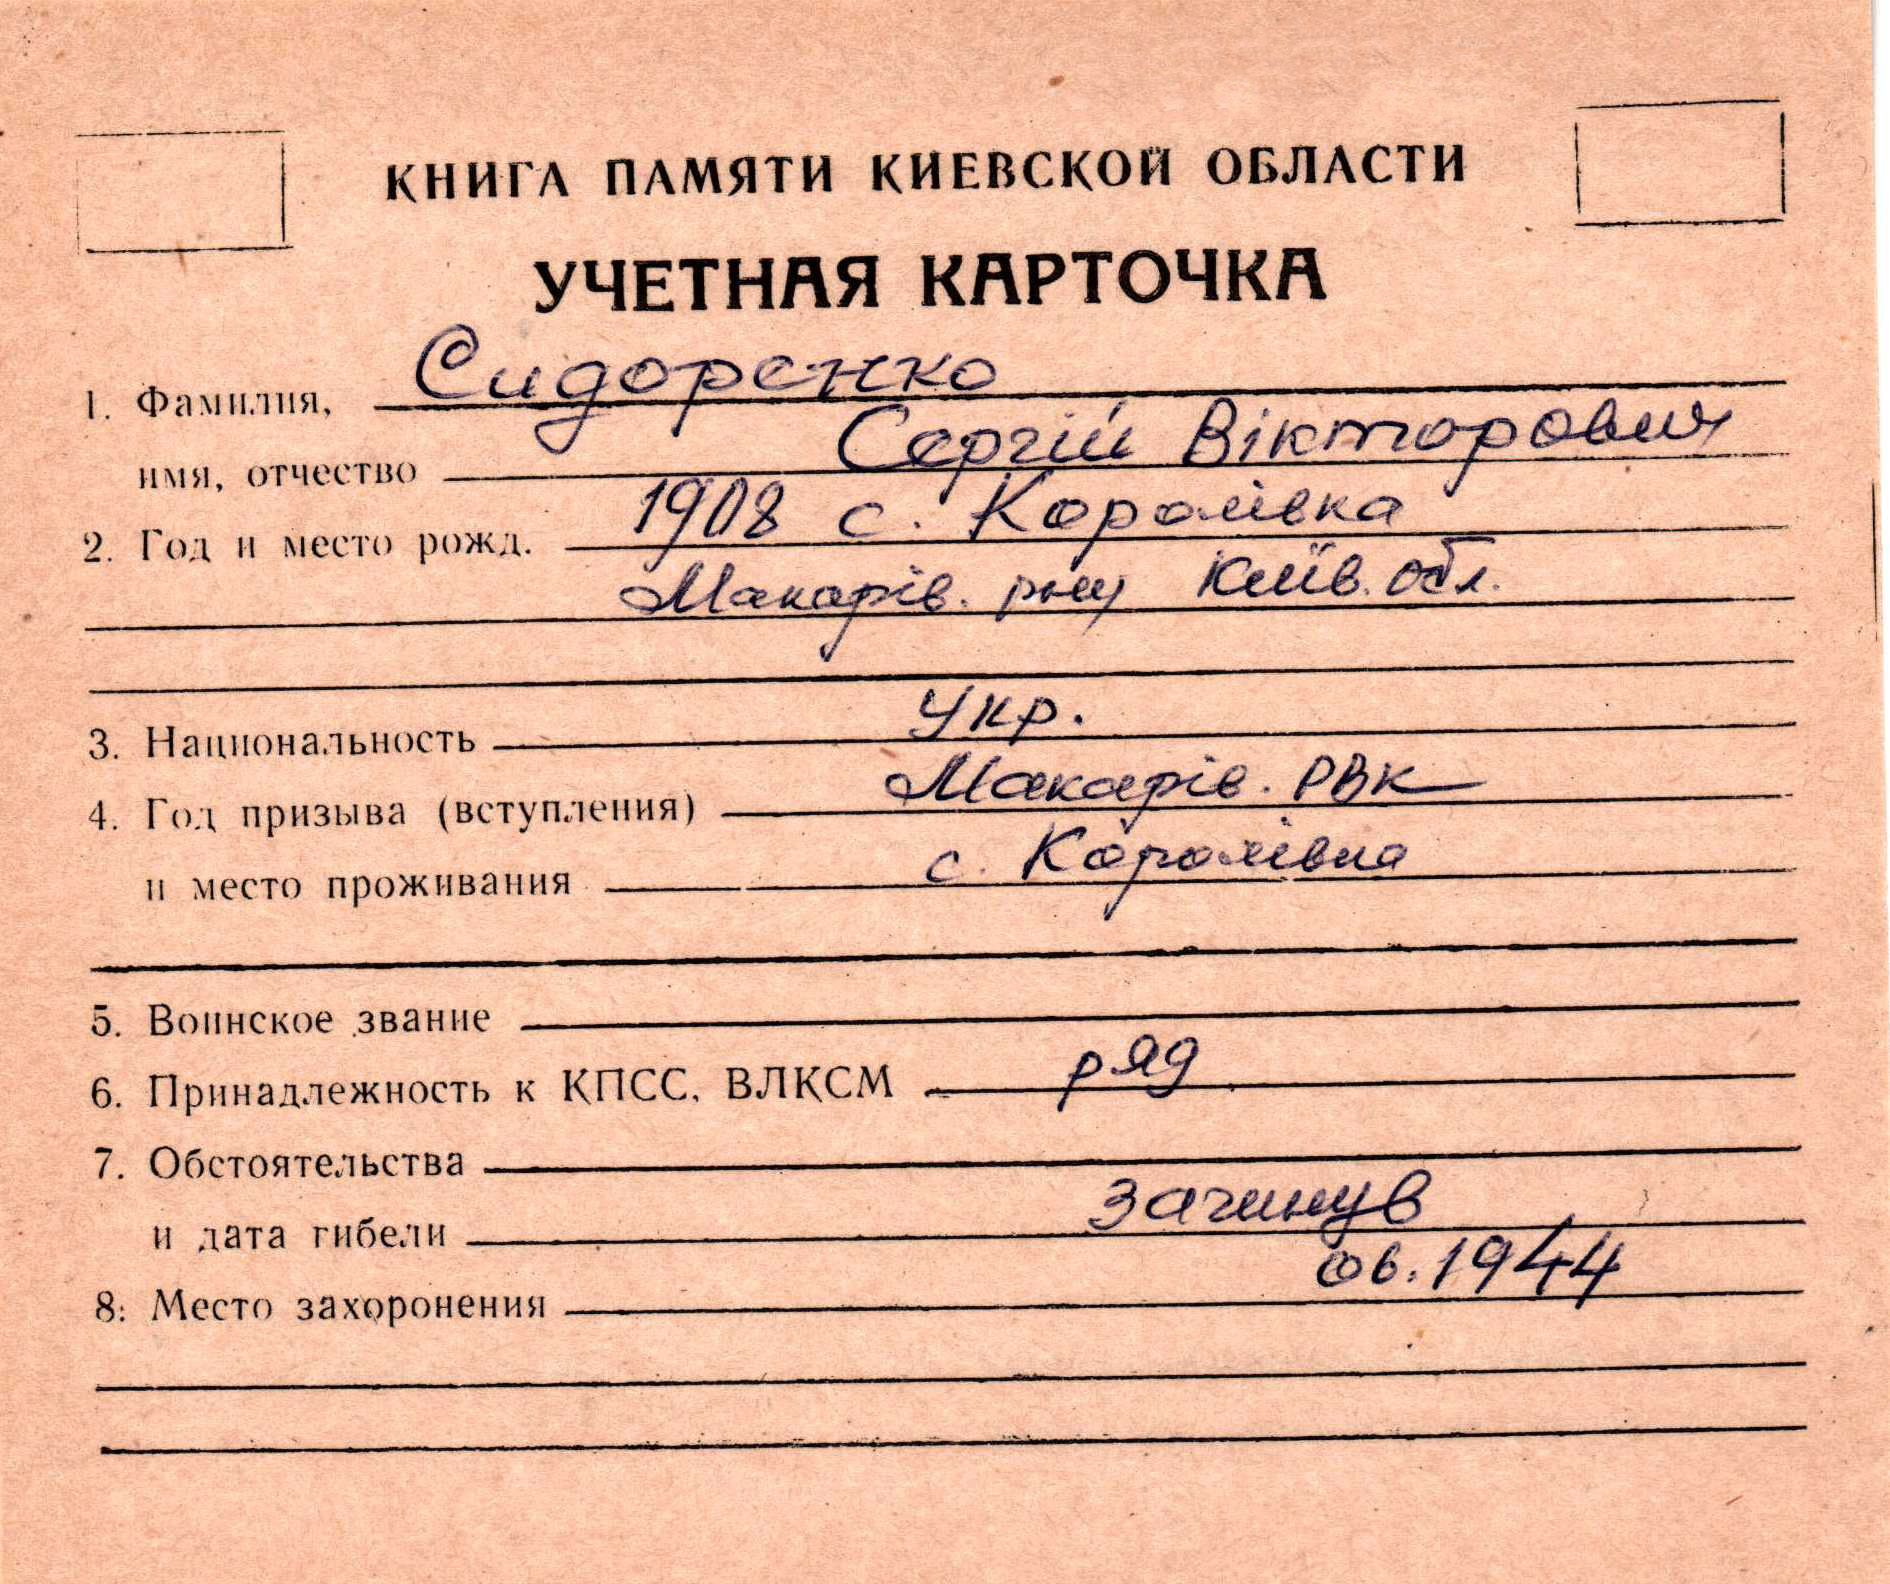 КНИГА ПАМЯТИ КИЕВСКОЙ ОБЛАСТИ
УЧЕТНАЯ КАРТОЧКА
1. Фамилия, Сидоренко
имя, отчество Сергій Вікторович
2. Год и место рожд. 1908 с. Королівка
Макарів. р-ну Київ. обл.
3. Национальность Укр.
4. Год призыва (вступления) Макарів. РВК
и место проживания с. Королівка
5. Воинское звание
6. Принадлежность к КПСС, ВЛКСМ ряд
7. Обстоятельства
и дата гибели загинув
8. Место захоронения 06.1944